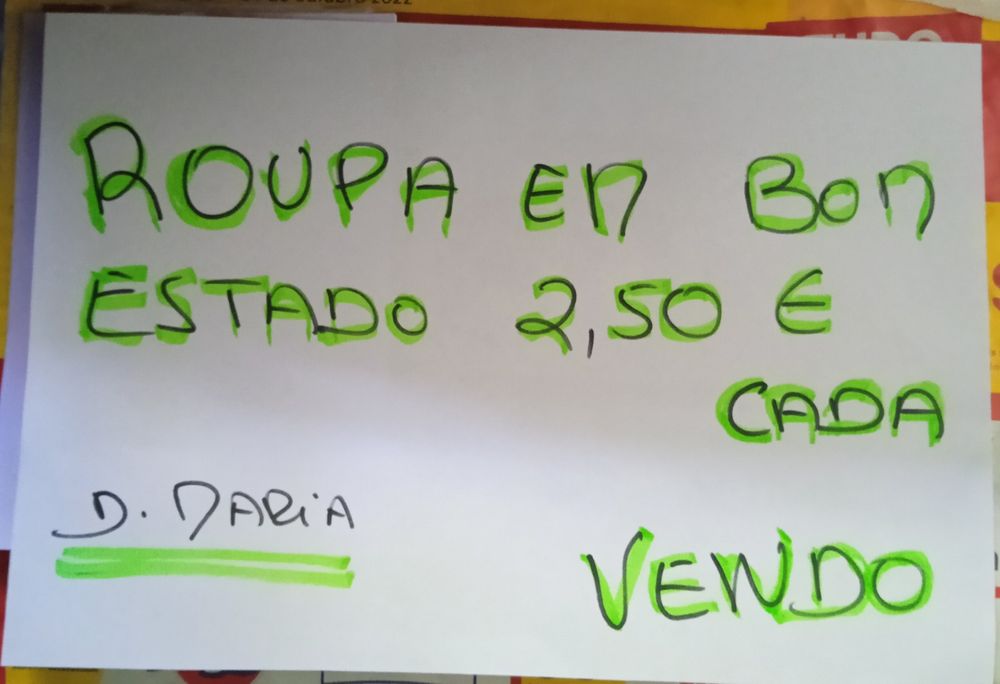 ROUPA EM BOM
ESTADO 2,50 €
CADA
D. MARIA
VENDO